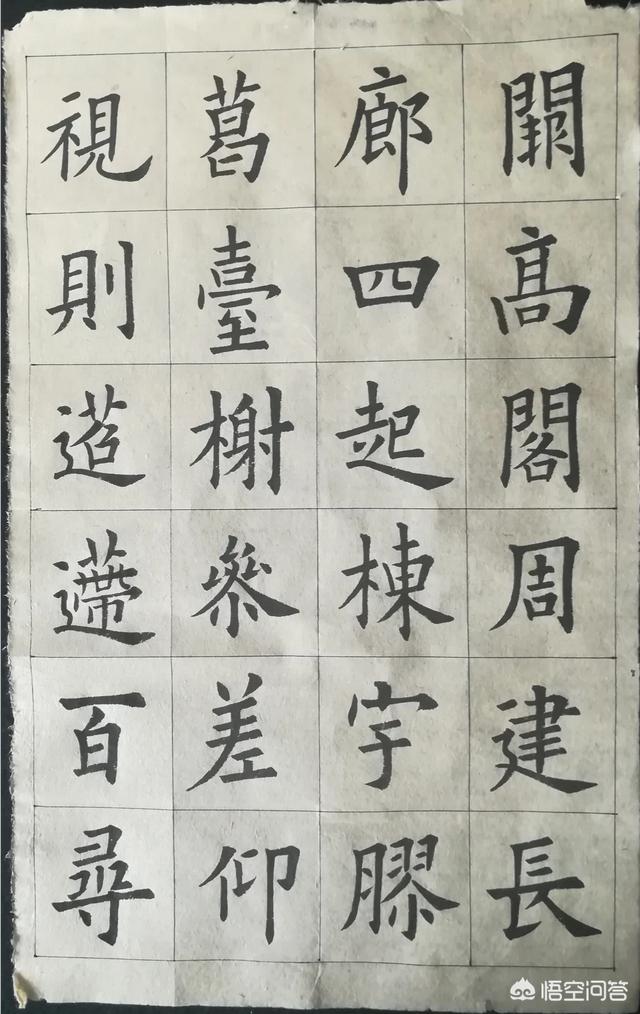 闕髙閣周建長
廊四起棟宇膠
葛臺榭參差仰
視則迢遰百尋
悟空问答